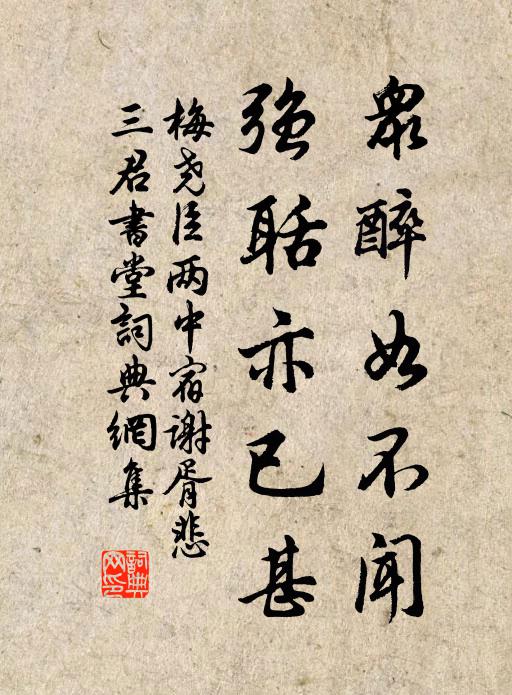 眾醉如不聞
強聒亦已甚
梅尧臣两中宿谢胥悲
三君書堂詞典網集
詞典
网印